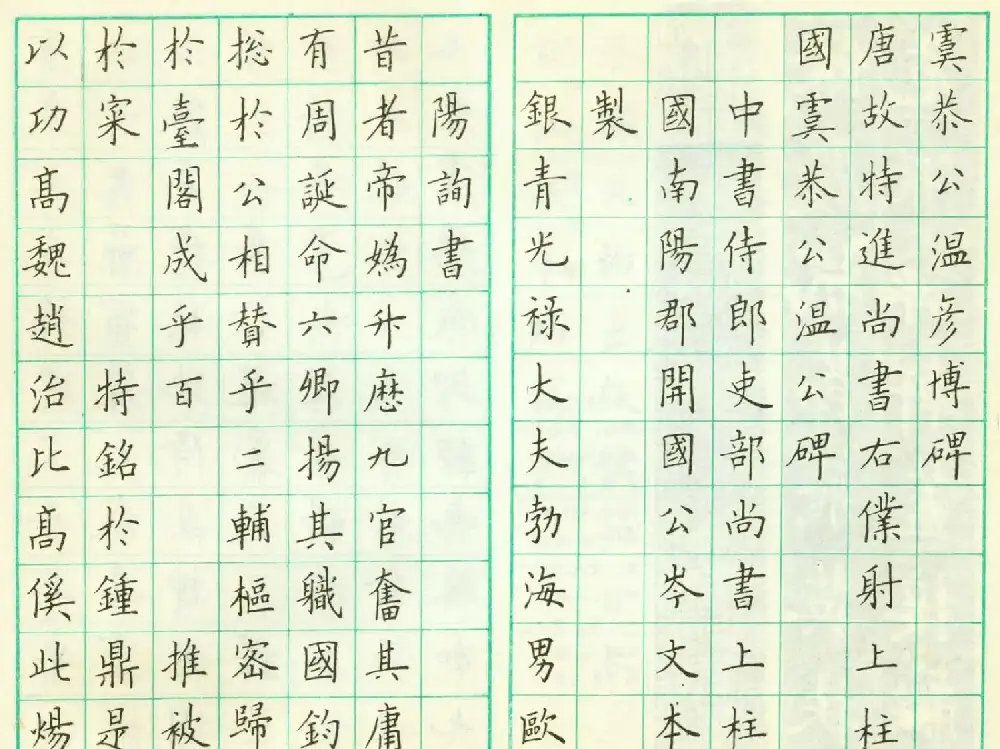 虞恭公温彦博碑
唐故特進尚書右僕射上柱
國虞恭公温公碑
中書侍郎吏部尚書上柱
國南陽郡開國公岑文本
製
銀青光禄大夫勃海男歐
陽詢書
昔者帝媯升歷九官奮其庸
有周誕命六卿揚其職國鈞
捴於公相賛乎二輔樞密歸
於臺閣成乎百推被
於寀特銘於鍾鼎是
以功高魏趙治比高傒此煬